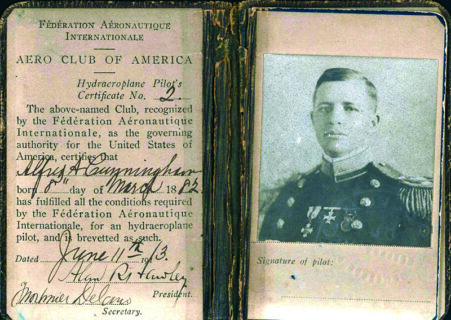 FÉDÉRATION AÉRONAUTIQUE
INTERNATIONALE
AERO CLUB OF AMERICA
Hydraeroplane Pilot's
Certificate No. 2.
The above-named Club, recognized
by the Fédération Aéronautique
Internationale, as the governing
authority for the United States of
America, certifies that
Alfred A Cunningham
born 8" day of March 1882
has fulfilled all the conditions required
by the Fédération Aéronautique
Internationale, for an hydraeroplane
pilot, and is brevetted as such.
Dated June 11th 1913.
President.
Secretary.
Signature of pilot: